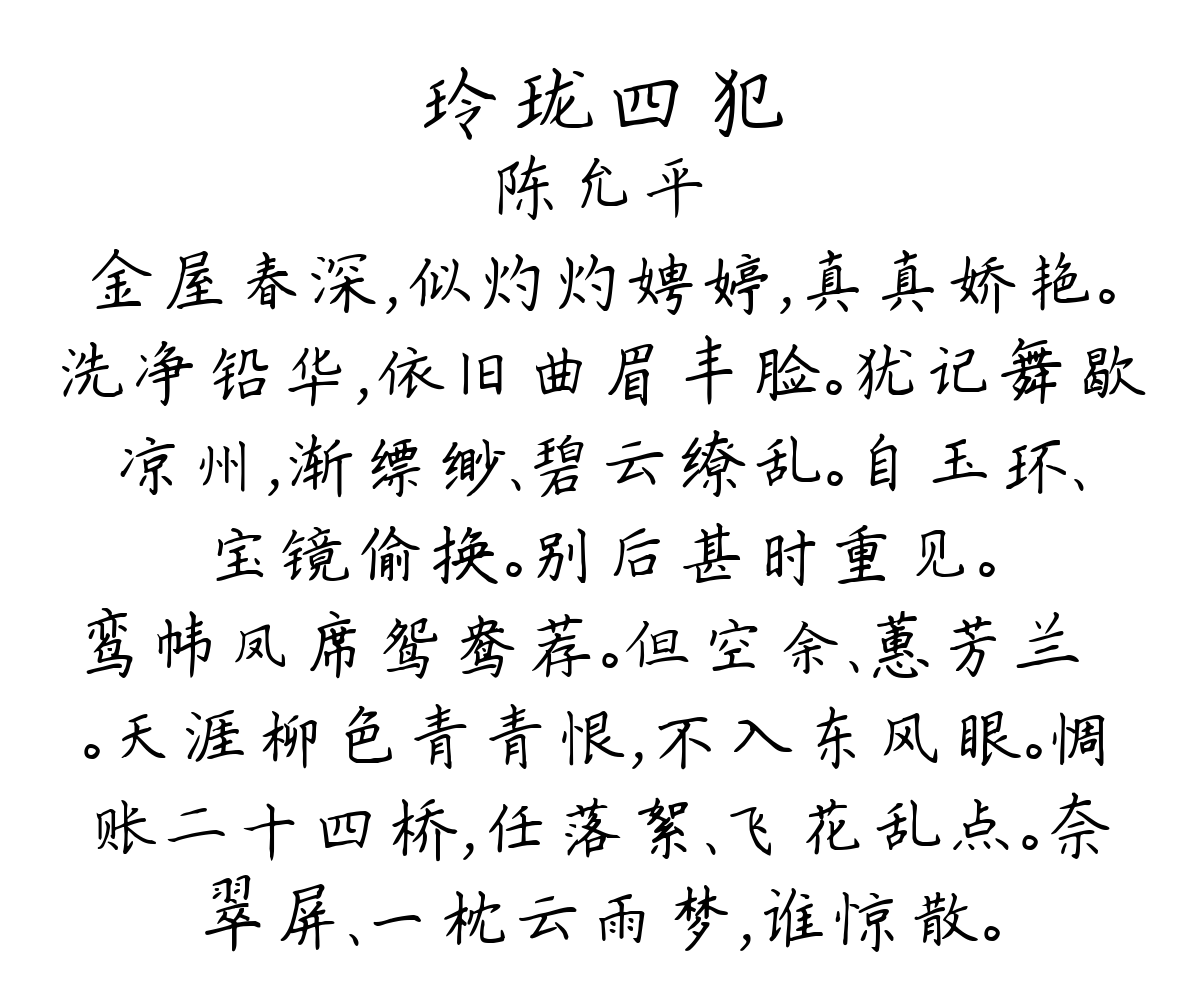 玲珑四犯
陈允平
金屋春深,似灼灼娉婷,真真娇艳。
洗净铅华,依旧曲眉丰脸。犹记舞歇
凉州,渐缥缈、碧云缭乱。自玉环、
宝镜偷换。别后甚时重见。
鸾帏凤席鸳鸯荐。但空余、蕙芳兰
。天涯柳色青青恨,不入东风眼。惆
账二十四桥,任落絮、飞花乱点。奈
翠屏、一枕云雨梦,谁惊散。